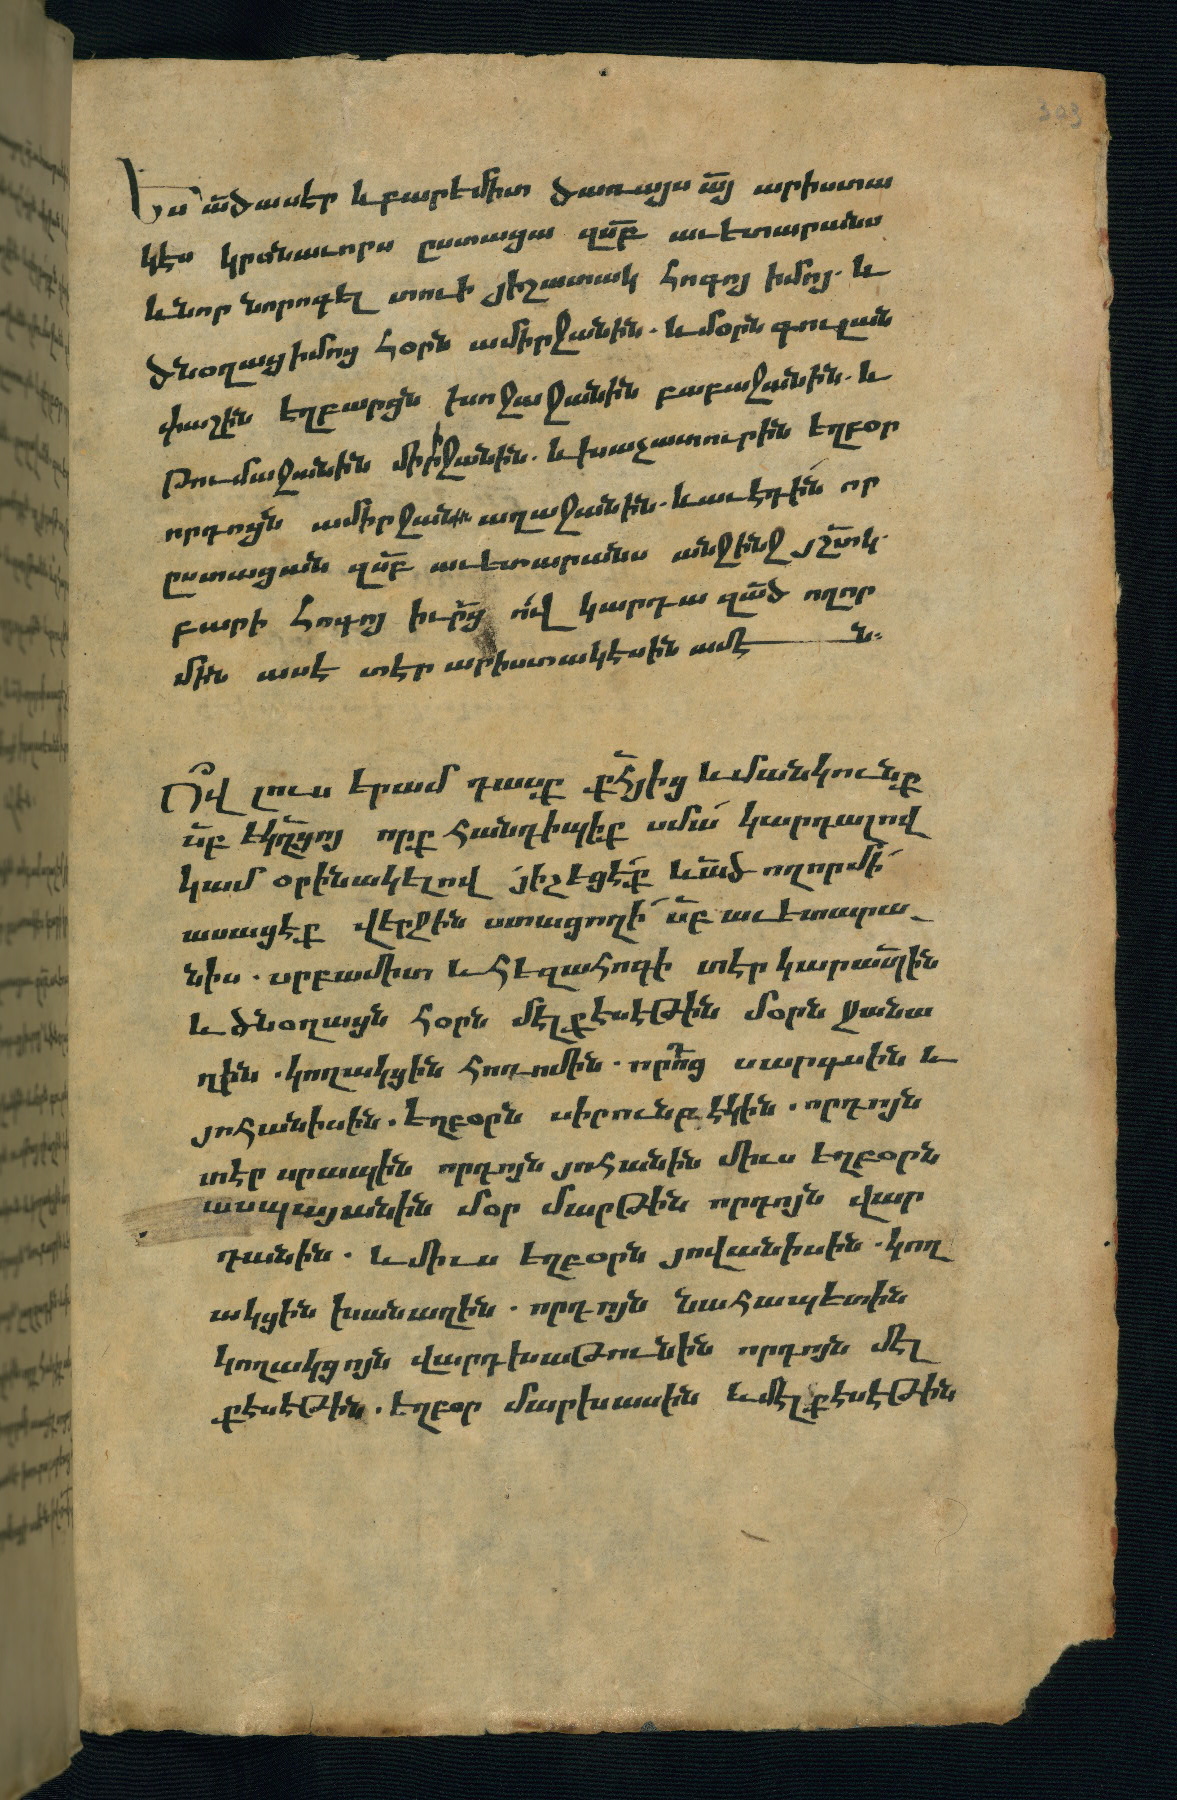 303
Ես ած̅ասէր և բարէմիտ ծառայս ա̅յ արիստա
կէս կրօնաւորս ըստացա զս̅բ աւետարանս
և նոր նորոգել տուի յիշատակ հոգոյ իմոյ. և
ծնօղաց իմոց հօրն ամիրջանին. և մօրն գուլան
փաշին եղբարցն խոջաջանին բաբաջանին. և
թումաջանին միրջանին. և խաչատուրին եղբօր
որդոյն ամիրջան աղաջանին. և աւէդին որ
ըստացան զս̅բ աւետարանս անջինջ յշ̅տկ.
բարի հոգոյ իւր̅ց ո՛վ կարդա զա̅ծ ողոր
մին ասէ տէր արիստակէսին ամէն:
Ո՛վ լուս երամ դասք ք̅հյից և մանկունք
ս̅բ եկղ̅ցոյ որք հանդիպիք սմա՛ կարդալով
կամ օրինակելով յիշեցէ՛ք և ա̅ծ ողորմի՛
ասացէք վերջին ստացողի՛ ս̅բ աւետարա
նիս. սրբամիտ և հեզահոգի տէր կարապ̅ին
և ծնօղացն հօրն մելքէսէթին մօրն ջանա
ղին. կողակցին հռոմին. որո̅ց սարգսին և
յոհանիսին. եղբօրն սիրունբէկին. որդոյն
տէր սրապին որդոյն յոհանին միւս եղբօրն
ասպայանին մօր մարթին որդոյն վար
դանին. և միւս եղբօրն յովանիսին. կող
ակցին խանաղին. որդոյն նահապետին
կողակցոյն վարդխաթունին որդոյն մել
քէսէթին. եղբօր մարխասին և մելքէսէթին